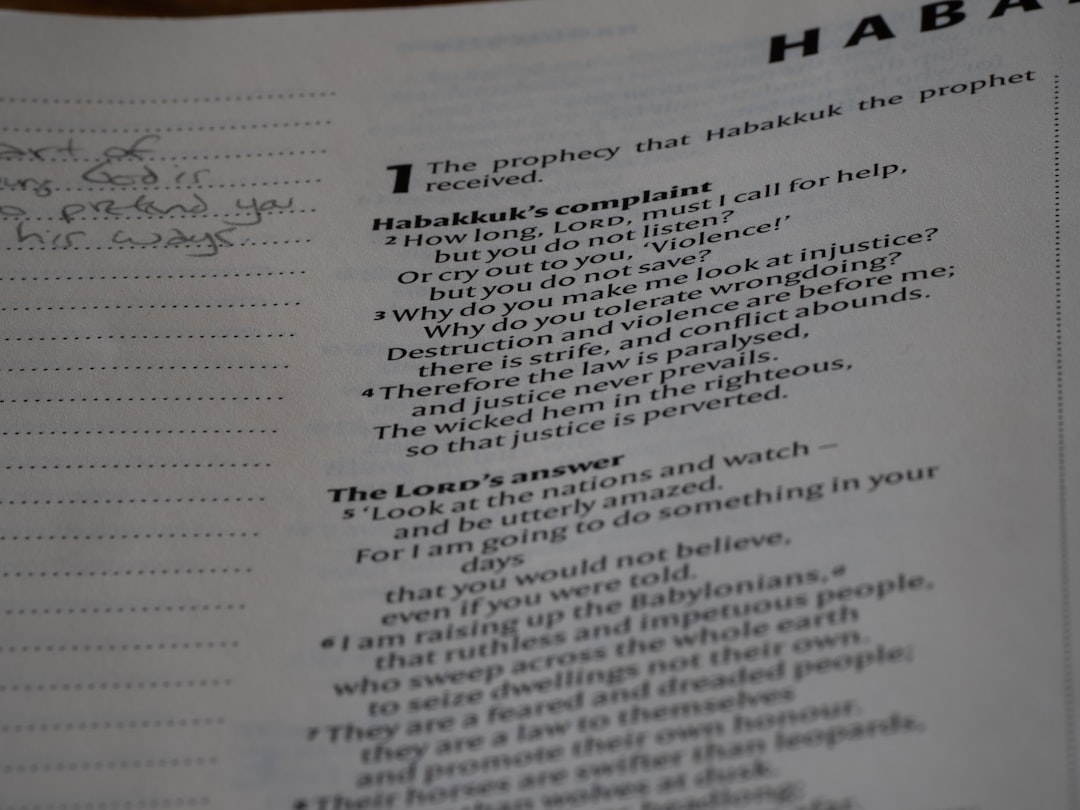 HABA
art of
God is
pretend you
his ways
1 The prophecy that Habakkuk the prophet
received.
Habakkuk's complaint
2 How long, LORD, must I call for help,
but you do not listen?
Or cry out to you, 'Violence!'
but you do not save?
3 Why do you make me look at injustice?
Why do you tolerate wrongdoing?
Destruction and violence are before me;
there is strife, and conflict abounds.
4 Therefore the law is paralysed,
and justice never prevails.
The wicked hem in the righteous,
so that justice is perverted.
The LORD's answer
5 'Look at the nations and watch –
and be utterly amazed.
For I am going to do something in your
days
that you would not believe,
even if you were told.
6 I am raising up the Babylonians,a
that ruthless and impetuous people,
who sweep across the whole earth
to seize dwellings not their own.
7 They are a feared and dreaded people;
they are a law to themselves
and promote their own honour.
8 Their horses are swifter than leopards,
than wolves at dusk.
headlong;